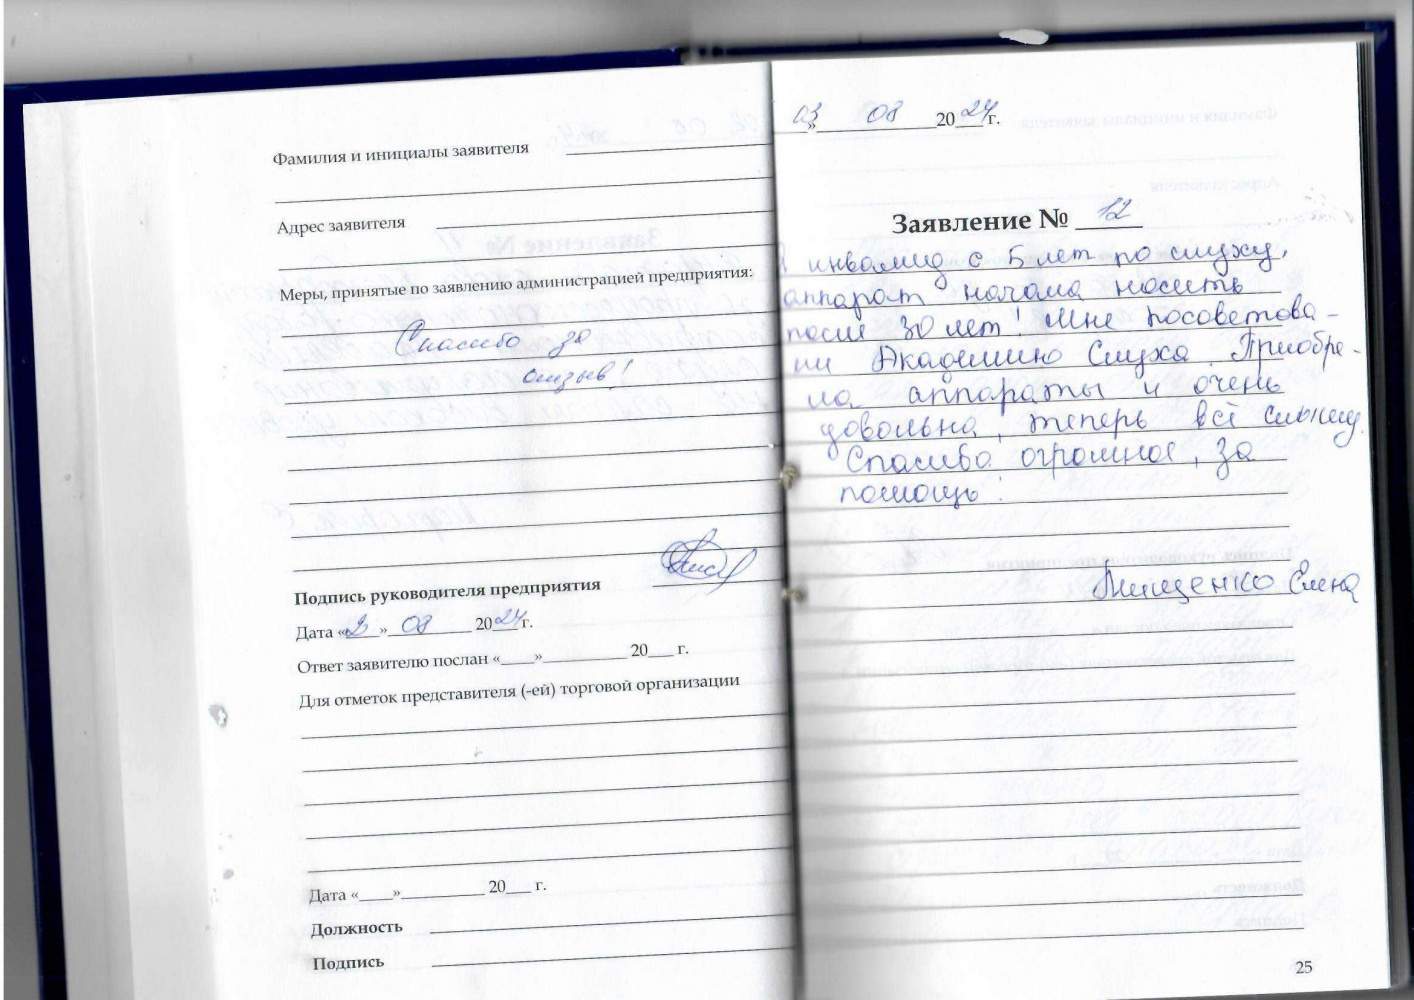 Фамилия и инициалы заявителя
Адрес заявителя
Меры, принятые по заявлению администрацией предприятия:
Спасибо за
отзыв!
Подпись руководителя предприятия
Дата «2» 08 2024 г.
Ответ заявителю послан «____»__________ 20___ г.
Для отметок представителя (-ей) торговой организации
Дата «____»__________ 20___ г.
Должность
Подпись
03» 08 2024 г.
Заявление № 12
Я инвалид с 5 лет по слуху,
аппарат начала носить
после 30 лет! Мне посоветова-
ли Академию Слуха. Приобре-
ла аппараты и очень
довольна, теперь всё слышу.
Спасибо огромное, за
помощь!
Мищенко Елена
25